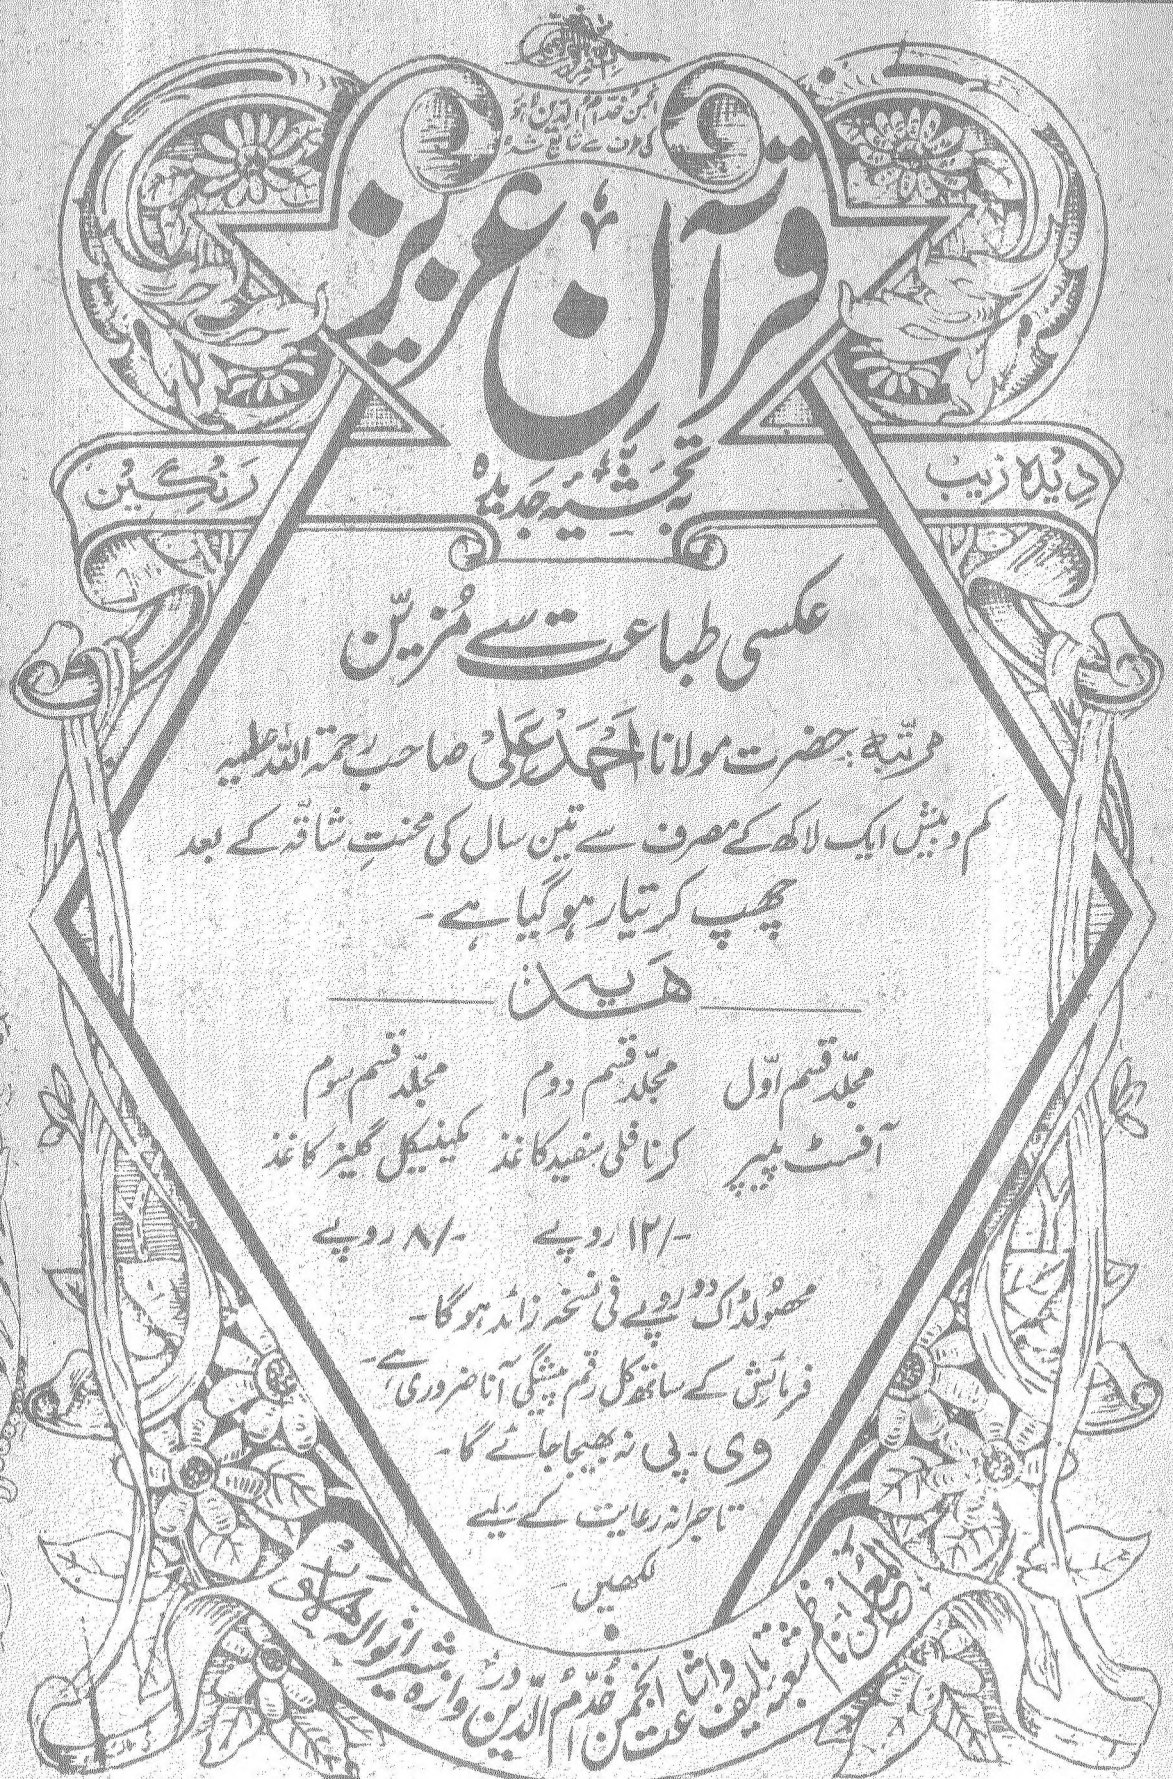 انجمن خدام الدین لاہور
کی طرف سے شائع شدہ
قرآن عزیز
دیدہ زیب
بہ تحشیہ جدیدہ
رنگین
عکسی طباعت سے مُزیّن
مرتّبہ: حضرت مولانا اَحْمَدْ عَلِیْ صاحب رحمۃ اللہ علیہ
کم و بیش ایک لاکھ کے مصرف سے تین سال کی محنتِ شاقّہ کے بعد
چھپ کر تیار ہو گیا ہے۔
ھَدیہ
مجلّد قسم اوّل مجلّد قسم دوم مجلّد قسم سوم
آفسٹ پیپر کرنافلی سفید کاغذ مکینیکل گلیز کاغذ
۱۲/- روپے ۸/- روپے
محصُولڈاک دو روپے فی نسخہ زائد ہو گا۔
فرمائش کے ساتھ کل رقم پیشگی آنا ضروری ہے۔
وی۔ پی نہ بھیجا جائے گا۔
تاجرانہ رعایت کے لیے
لکھیں۔
المعلن ناظم شعبہ تالیف و اشاعت انجمن خُدّام الدّین دروازہ شیرانوالہ لاہور